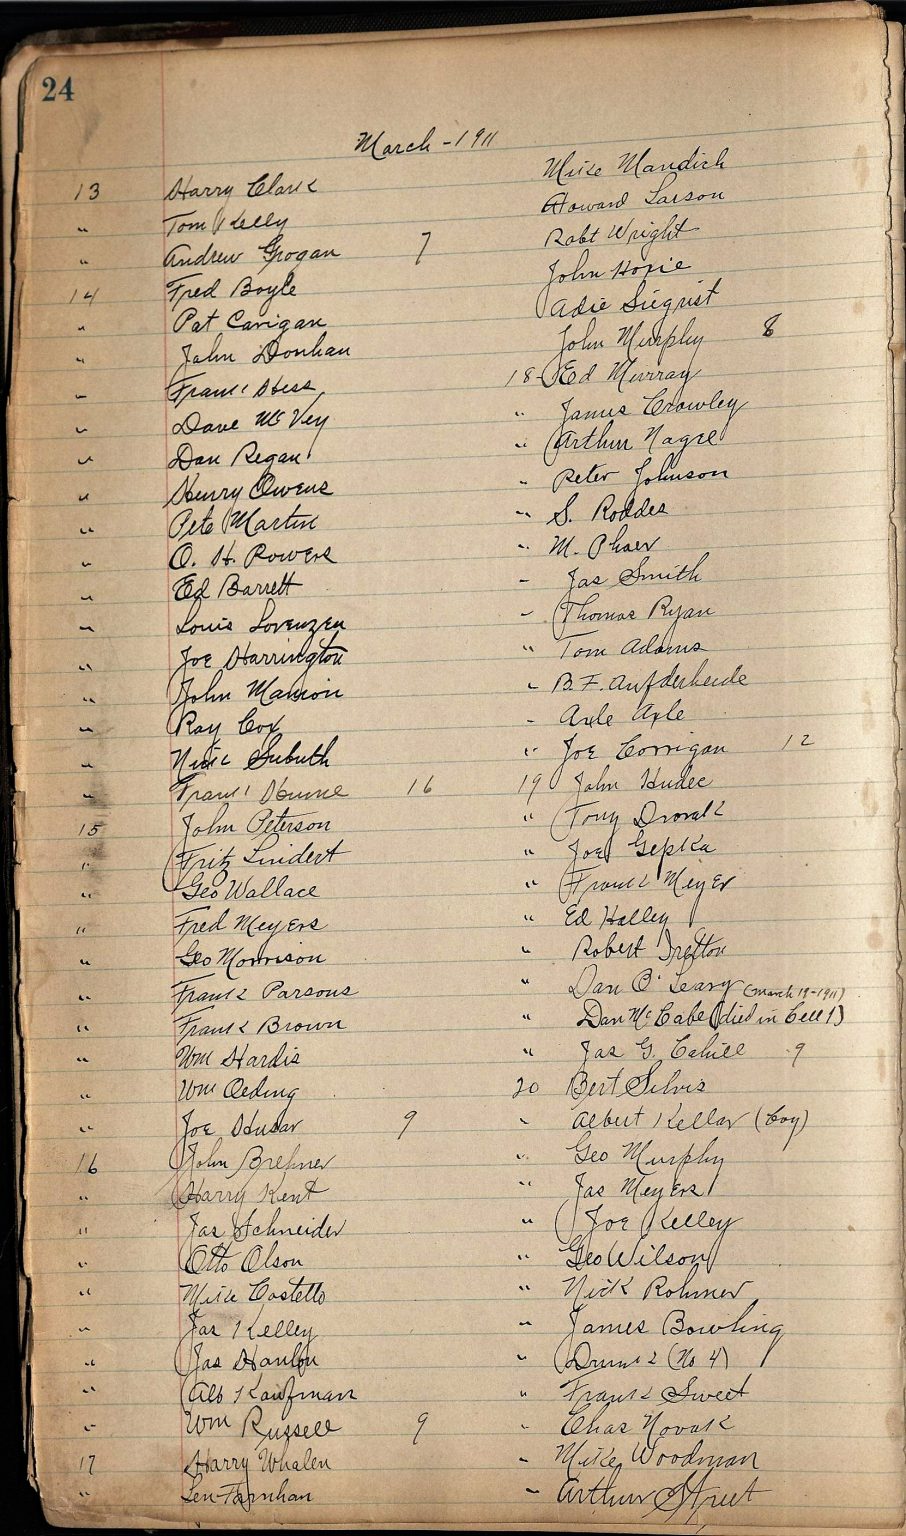 24
March - 1911
13 Harry Clark
" Tom Kelly
" Andrew Grogan 7
14 Fred Boyle
" Pat Carigan
" John Donhan
" Frank Hess
" Dave McVey
" Dan Regan
" Henry Owens
" Pete Martin
" O. H. Rowers
" Ed Barrett
" Louis Lorenzen
" Joe Harrington
" John Manion
" Ray Cox
" Nick
" Frank Hume 16
15 John Peterson
" Fritz Lindert
" Geo Wallace
" Fred Meyers
" Geo Morrison
" Frank Parsons
" Frank Brown
" Wm Hardis
" Wm Oeding
" Joe Husar 9
16 John Brenner
" Harry Kent
" Jas Schneider
" Otto Olson
" Mike Costello
" Jas Kelley
" Jas Hanlon
" Alb Kaufman
" Wm Russell 9
17 Harry Whalen
" Len Farnhan
Mike Mandich
Howard Larson
Robt Wright
John Hosie
Adie Siegrist
John Murphy 8
18 - Ed Murray
" James Crowley
" Arthur Nagre
" Peter Johnson
" S. Roddes
" M. Phaer
" Jas Smith
" Thomas Ryan
" Tom Adams
" B. F. Aufderheide
" Axle Axle
" Joe Corrigan 12
19 John Hudec
" Tony Dvorak
" Joe Gepka
" Frank Meyer
" Ed Halley
" Robert
" Dan O'Leary (March 19-1911)
" Dan McCabe (died in Cell 1)
" Jas G. Cahill 9
20 Bert Silvis
" Albert Kellar (Boy)
" Geo Murphy
" Jas Meyers
" Joe Kelley
" Geo Wilson
" Nick Rohmer
" James Bowling
" Drunk (No 4)
" Frank Sweet
" Chas Novak
" Mike Woodman
" Arthur Street